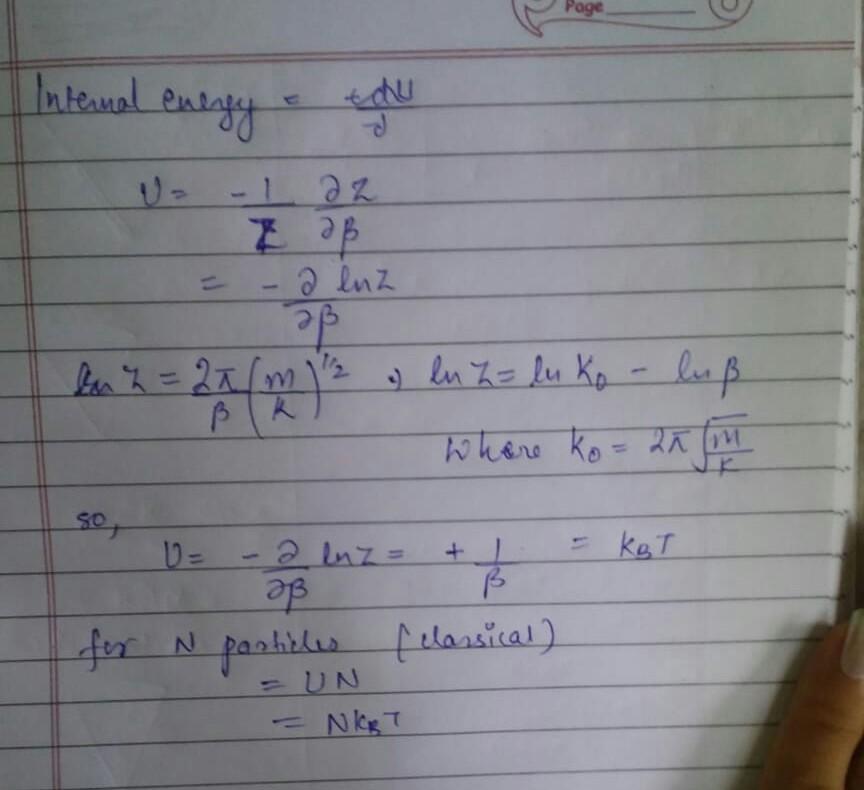 Page
Internal energy =
U = -1/Z ∂Z/∂β
= -∂/∂β ln Z
ln Z = 2π/β (m/k)^1/2 , ln Z = ln K₀ - ln β
where K₀ = 2π √(m/k)
so,
U = -∂/∂β ln Z = + 1/β = K_BT
for N particles (classical)
= UN
= NK_BT